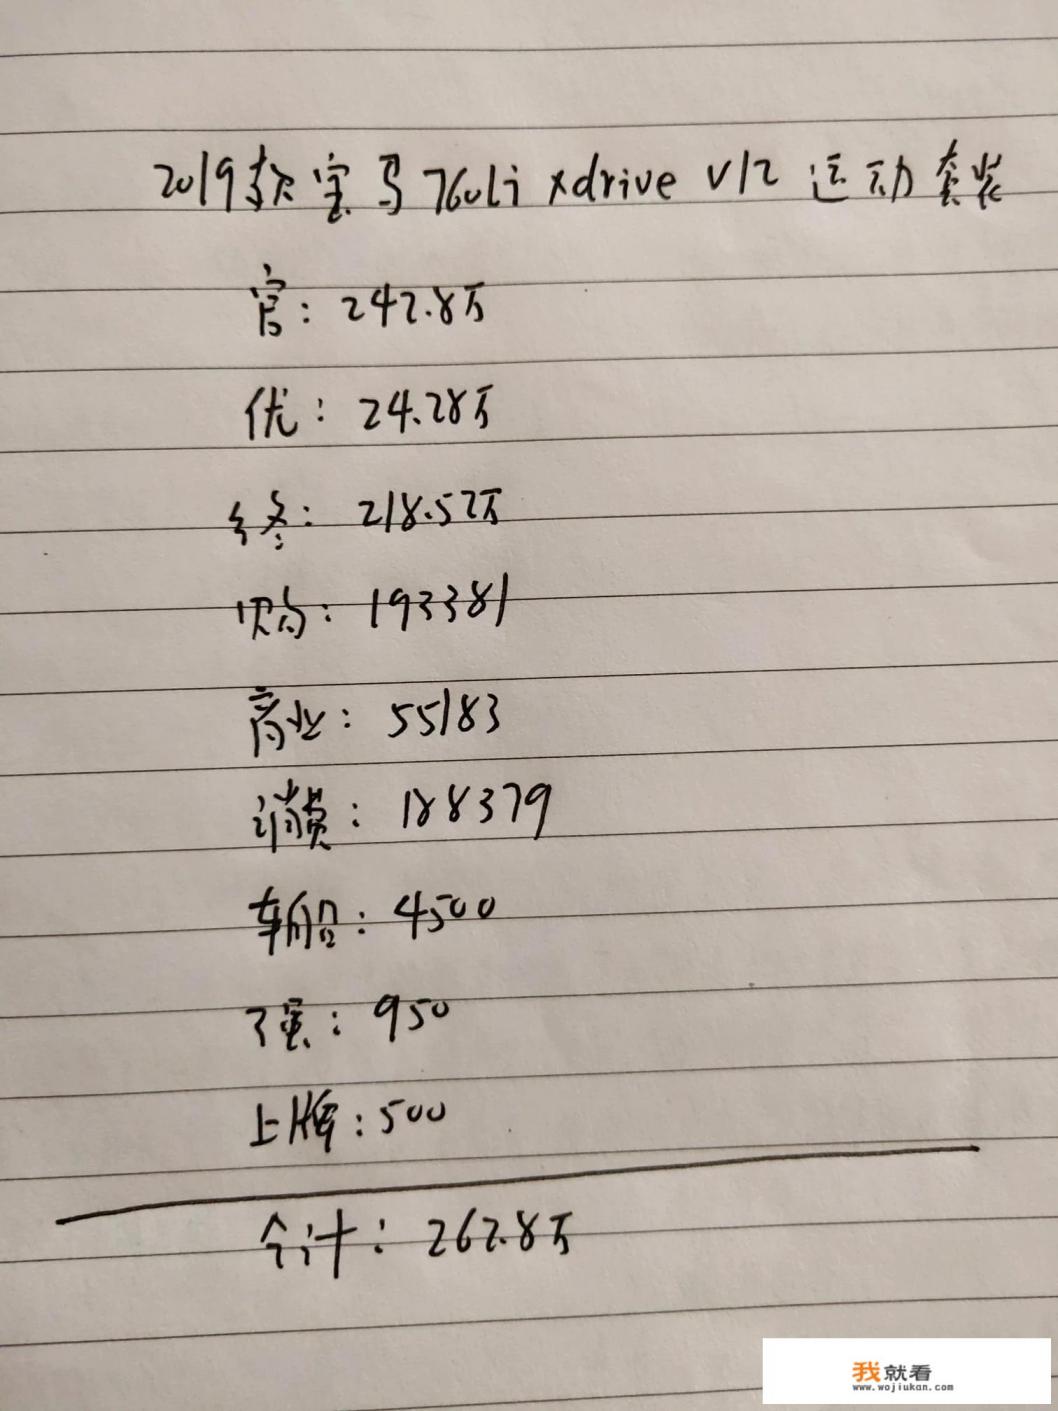 2019款宝马760Li xdrive V12 运动套装
官：242.8万
优：24.28万
终：218.52万
购：193381
商业：55183
消费：188379
车船：4500
了强：950
上牌：500
合计：262.8万
我就看
www.wojiukan.com